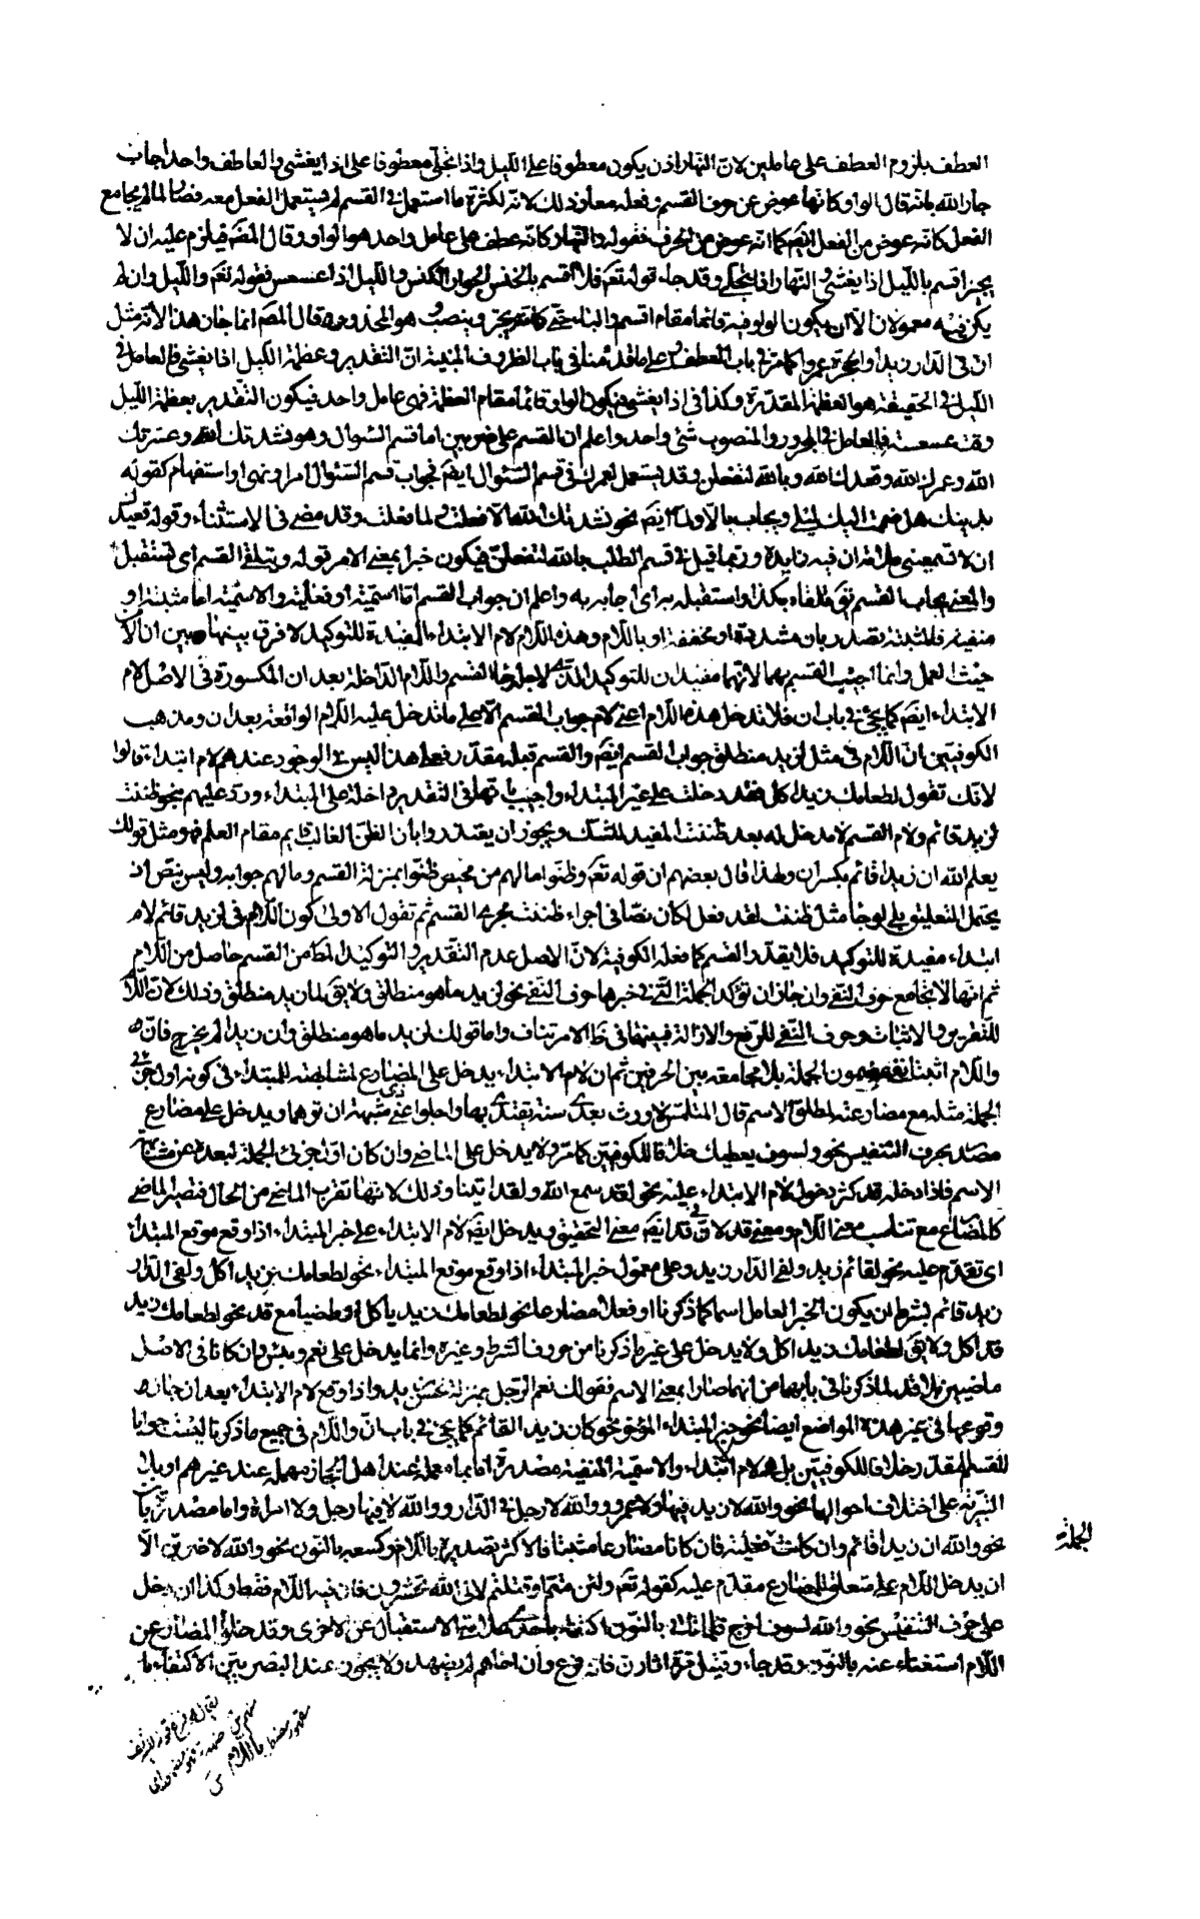 العطف بلزوم العطف على عاملين لان النهار اذن يكون معطوفا على الليل واذا تجلى معطوفا على اذا يغشى والعاطف واحد اجاب
جار الله بانه قال الواو كانها عوض عن حرف القسم وفعله معا وذلك لانه لكثرة ما استعمل فى القسم لم يستعمل الفعل معه فصار لما لم يجامع
الفعل كانه عوض من الفعل ايضا كما انه عوض من الحرف فقوله والنهار كانه عطف على عامل واحد هو الواو وقال المص فيلزم عليه ان لا
يجيز اقسم بالليل اذا يغشى والنهار اذا تجلى وقد جاء قوله تعم فلا اقسم بالخنس الجوار الكنس والليل اذا عسعس فقوله تعم والليل وان لم
يكن فيه معمولان الا ان يكون الواو فيه قائما مقام اقسم والباء حتى كانه يجر وينصب هو المحذور وقال المص انما جاز هذا لانه مثل
ان فى الدار زيدا والحجرة عمروا كما مر فى باب العطف على ما قدمنا فى باب الظروف المبنية ان التقدير وعظمة الليل اذا يغشى فالعامل فى
الليل فى الحقيقة هو العظمة المقدرة وكذا فى اذا يغشى فيكون الواو قائما مقام العظمة فهى عامل واحد فيكون التقدير بعظمة الليل
وقت عسعسته فالعامل فى المجرور والمنصوب شئ واحد واعلم ان القسم على ضربين اما قسم السؤال وهو نشدتك الله وعمرتك
الله وعمرك الله وقعدك الله وبالله لتفعلن وقد يستعمل لعمرك فى قسم السؤال ايضا فجواب قسم السؤال امر او نهى او استفهام كقوله
بدينك هل ضممت اليك ليلى ويجاب بالا ولما ايضا نحو نشدتك الله الا فعلت ولما فعلت وقد مضى فى الاستثناء وقوله قعيدك
ان لا تسمعينى ملامة ان فيه زايدة وربما قيل فى قسم الطلب بالله لتفعلن فيكون خبرا بمعنى الامر قوله ويتلقى القسم اى يستقبل
والمعنى يجاب القسم يق تلقاه بكذا واستقبله به اى اجابه به واعلم ان جواب القسم اما اسمية او فعلية والاسمية اما مثبتة او
منفية فالمثبتة تصدر بان مشددة او مخففة او باللام وهذه اللام لام الابتداء المفيدة للتوكيد لا فرق بينها وبين ان الا من
حيث العمل وانما اجيب القسم بهما لانهما مفيدان للتوكيد الذى لاجله جاء القسم واللام الداخلة بعد ان المكسورة فى الاصل لام
الابتداء ايضا كما يجئ فى باب ان فلا تدخل هذه اللام اعنى لام جواب القسم الا على ما تدخل عليه اللام الواقعة بعد ان ومذهب
الكوفيين ان اللام فى مثل لزيد منطلق جواب القسم ايضا والقسم قبله مقدر فعلى هذا ليس فى الوجود عندهم لام ابتداء قالوا
لانك تقول لطعامك زيد اكل فقد دخلت على غير المبتداء واجيب بانها فى التقدير داخلة على المبتداء ورد عليهم بنحو ظننت
لزيد قائم ولام القسم لا مدخل له بعد ظننت المفيد للشك ويجوز ان يعتذروا بان الظن الغالب قايم مقام العلم فهو مثل قولك
يعلم الله ان زيدا قائم بكسر ان ولهذا قال بعضهم ان قوله تعم وظنوا ما لهم من محيص ظنوا بمنزلة القسم وما لهم جوابه وليس بنص اذ
يحتمل التعليق بلى لو جاء مثل ظننت لقد فعل لكان نصا فى اجراء ظننت مجرى القسم ثم تقول الاولى كون اللام فى لزيد قائم لام
ابتداء مفيدة للتوكيد فلا يقدر القسم كما فعله الكوفية لان الاصل عدم التقدير والتوكيد المط من القسم حاصل من اللام
ثم انها لا تجامع حرف النفى وان جاز ان تؤكد الجملة التى فى خبرها حرف النفى نحو لزيد ما هو منطلق ولا يق لما زيد منطلق وذلك لان اللام
للتقرير والاثبات وحرف النفى للرفع والازالة فبينهما فى ظ الامر تناف واما قولك لزيد ما هو منطلق وان زيدا لم يخرج فان
واللام اثبتا مضمون الجملة بلا مجامعة بين الحرفين ثم ان لام الابتداء يدخل على المضارع لمشابهته للمبتداء فى كونه اول جزئى
الجملة مثله مع مضارعته لمطلق الاسم قال
مصدر بحرف التنفيس نحو ولسوف يعطيك خلافا للكوفيين كما مر ولا يدخل على الماضى وان كان اول جزئى الجملة لبعده عن مشابهة
الاسم فاذا دخله قد كثر دخول لام الابتداء عليه نحو لقد سمع الله ولقد اتينا وذلك لانها تقرب الماضى من الحال فتصير الماضى
كالمضارع مع تناسب معنى اللام ومعنى قد لان فى قد ايضا معنى التحقيق ويدخل ايضا لام الابتداء على خبر المبتداء اذا وقع موقع المبتداء
اى تقدم عليه نحو لقائم زيد ولفى الدار زيد وعلى معمول خبر المبتداء اذا وقع موقع المبتداء نحو لطعامك زيد اكل ولفى الدار
زيد قائم بشرط ان يكون الخبر العامل اسما كما ذكرنا او فعلا مضارعا نحو لطعامك زيد ياكل او ماضيا مع قد نحو لطعامك زيد
قد اكل ولا يق لطعامك زيد اكل ولا يدخل على غير ما ذكرنا من حروف الشرط وغيره وانما يدخل على نعم وبئس وان كانا فى الاصل
ماضيين بلا قد لما ذكرنا فى بابهما من انهما صارا بمعنى الاسم فقولك نعم الرجل بمنزلة لحسن زيد واذا وقع لام الابتداء بعد ان جاز
وقوعها فى غير هذه المواضع ايضا نحو خبر المبتداء المؤخر نحو كان زيد القائم كما يجئ فى باب ان واللام فى جميع ما ذكرنا ليست جوابا
للقسم المقدر خلافا للكوفيين بل هى لام ابتداء والاسمية المنفية مصدرة اما بما معملة عند اهل الحجاز مهملة عند غيرهم او بلا
التبرئة على اختلاف احوالها نحو والله لا زيد فيها ولا عمرو ووالله لا رجل فى الدار ووالله لا فيها رجل ولا امراة واما مصدرة بان
نحو والله ان زيدا قائم وان كانت فعلية فان كانا مضارعا مثبتا فالاكثر تصديره باللام وكسعه بالنون نحو والله لاضربن الا
ان يدخل اللام على متعلق المضارع مقدم عليه كقوله تعم ولئن متم او قتلتم لالى الله تحشرون فان فيه اللام فقط وكذا ان دخل
على حرف التنفيس نحو والله لسوف اخرج
اللام استغناء عنه بالنون وقد جاء وقتيل مرة اثارن فانه فرع وان اخاهم لم يضهد ولا يجوز عند البصريين الاكتفاء با
الجملة